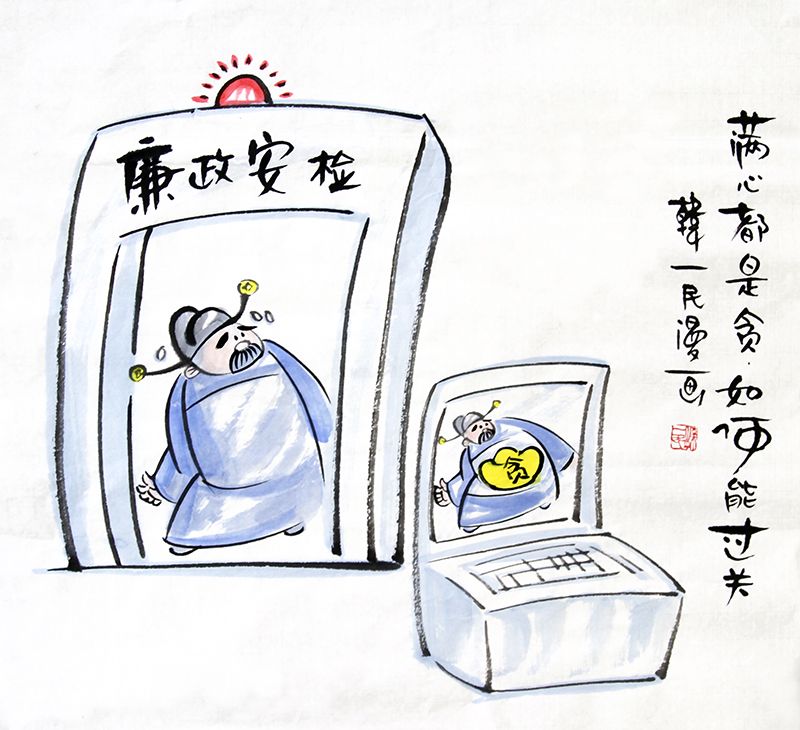 廉政安检
贪
满心都是贪·如何能过关
韓一民漫画